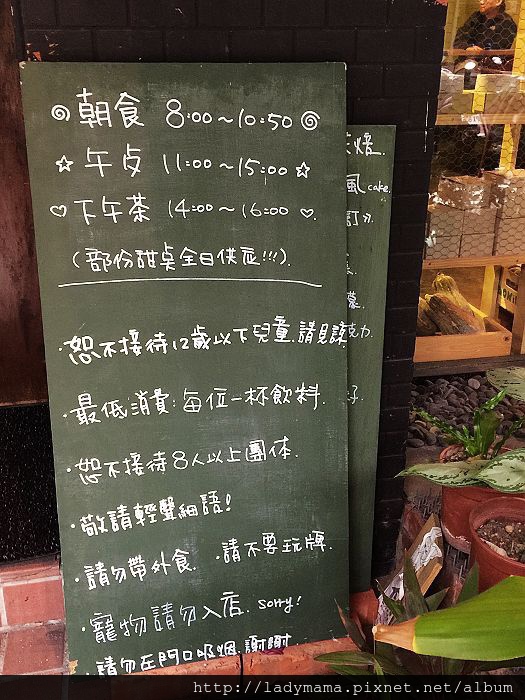 朝食 8:00~10:50
☆ 午占 11:00~15:00 ☆
♡下午茶 14:00~16:00 ♡
(部份甜桌全日供应!!!).
·恕不接待12歲以下兒童.請見諒
·最低消費:每位一杯飲料.
·恕不接待8人以上團体.
·敬請輕聲細語!
·請勿帶外食. ·請不要玩牌.
·寵物請勿入店. sorry!
·請勿在門口吸烟.謝謝
焙.
風cake.
力
子
http://ladymama.pixnet.net/album